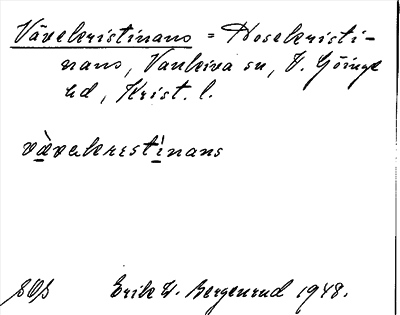 Vävekristinans = Hosekristi-
nans, Vankiva sn, V. Göinge
hd, Krist. l.
vàvəkrestìnans
SOS Erik W. Bergenrud 1948.